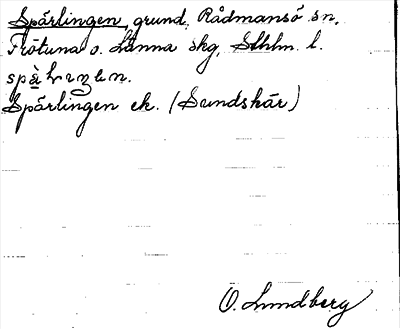 Spärlingen, grund, Rådmansö sn,
Frötuna o. Länna skg, Sthlm. l.
Spärlingen ek. (Sundskär)
O. Lundberg